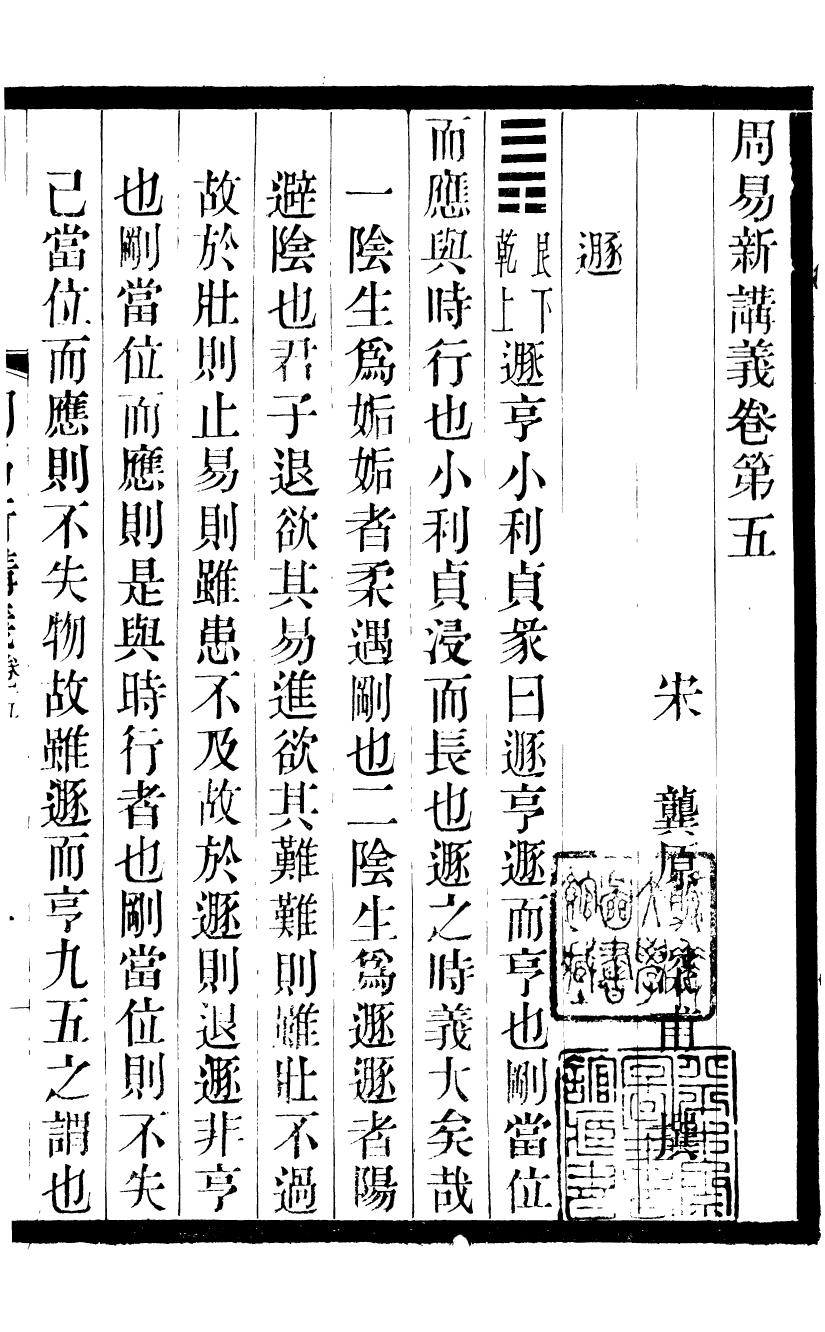 周易新講義卷第五
宋　龔原深甫撰
遯
䷠艮下乾上遯亨小利貞彖曰遯亨遯而亨也剛當位
而應與時行也小利貞浸而長也遯之時義大矣哉
一陰生爲姤姤者柔遇剛也二陰生爲遯遯者陽
避陰也君子退欲其易進欲其難難則雖壯不過
故於壯則止易則雖患不及故於遯則退遯非亨
也剛當位而應則是與時行者也剛當位則不失
己當位而應則不失物故雖遯而亨九五之謂也